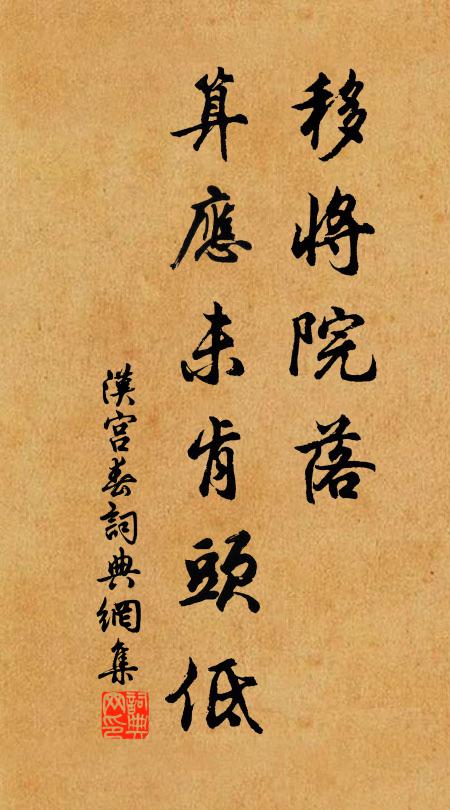 移將院落
算應未肯頭低
漢宮春詞典網集
詞典網印